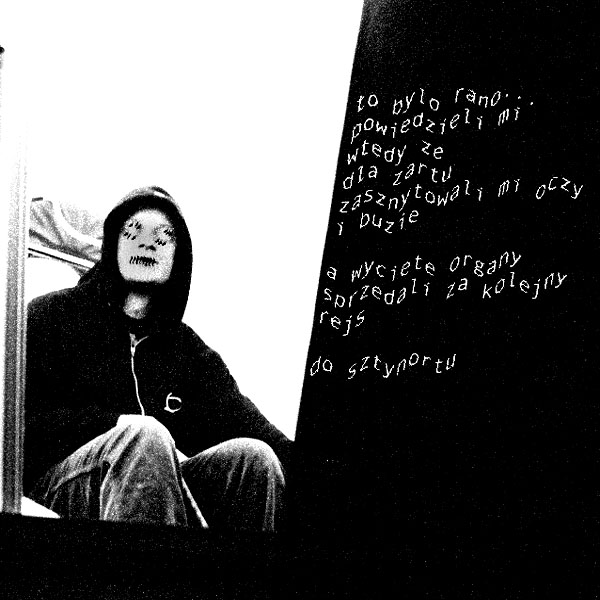 to bylo rano...
powiedzieli mi
wtedy ze
dla zartu
zasznytowali mi oczy
i buzie
a wyciete organy
sprzedali za kolejny
rejs
do sztynortu